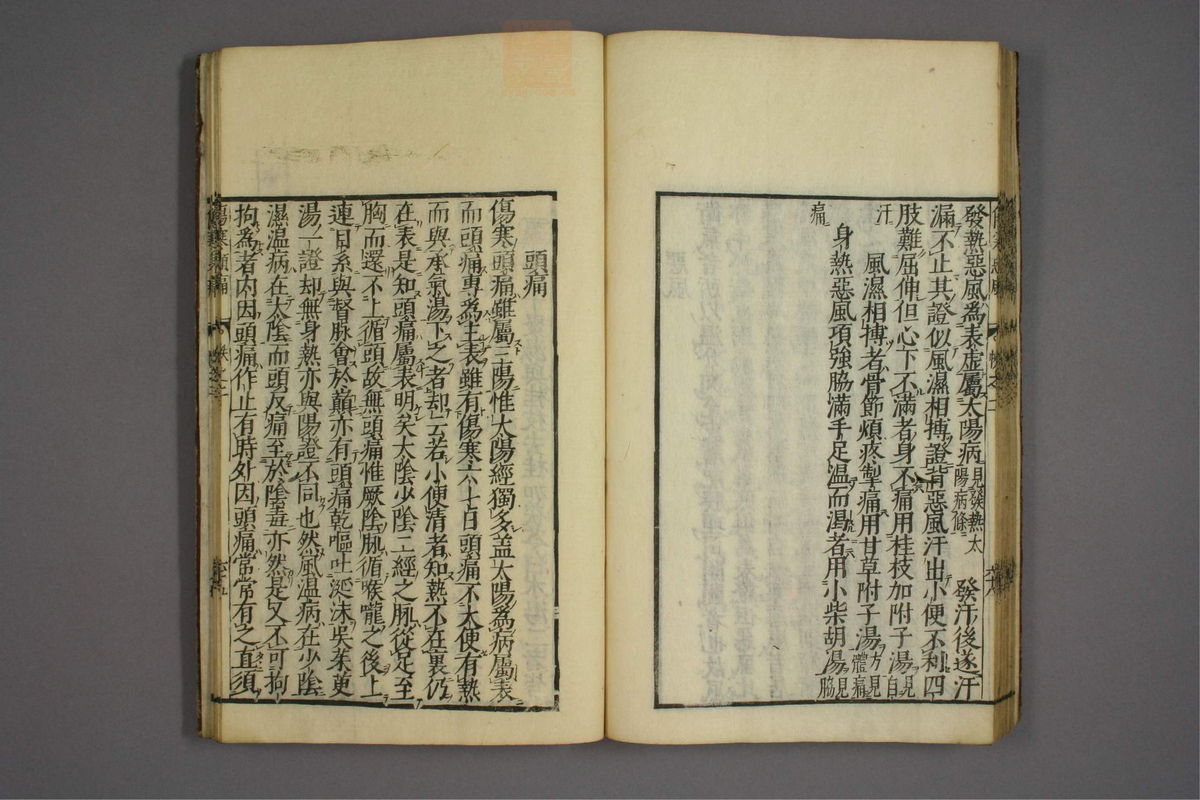 發熱惡風爲表虛屬太陽病見發熱太陽病條 發汗後遂汗
漏不止其證似風濕相摶證背惡風汗出小便不利四
肢難屈伸但心下不滿者身不痛用桂枝加附子湯見自
汗
風濕相摶者骨節煩疼掣痛用甘草附子湯方見體痛
身熱惡風項強脇滿手足溫而渴者用小柴胡湯見脇
痛
頭痛
傷寒頭痛雖屬三陽惟太陽經獨多盖太陽爲病屬表
而頭痛專爲主表雖有傷寒六七日頭痛不大便有熱
而與承氣湯下之者却云若小便清者知熱不在裏仍
在表是知頭痛屬表明矣太陰少陰二經之脉從足至
胸而還不上循頭故無頭痛惟厥陰脉循喉嚨之後上
連目系與督脉會於巔亦有頭痛乾嘔吐涎沫吳茱萸
湯一證却無身熱亦與陽證不同也然風溫病在少陰
濕溫病在太陰而頭反痛至於陰毒亦然是又不可拘
拘爲者內因頭痛作止有時外因頭痛常常有之直須
傷寒頭痛 卷之二